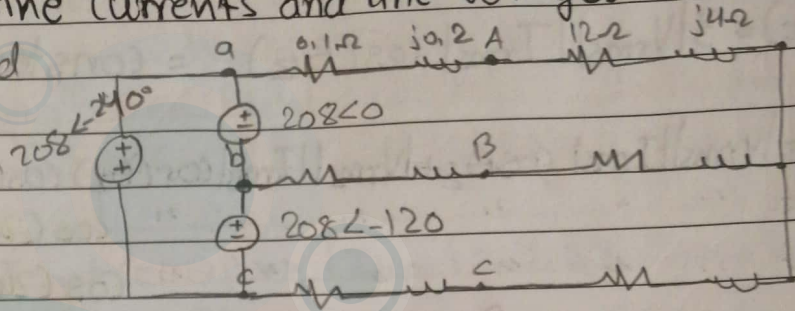 the currents and
d a 0.1Ω j0.2 A 12Ω j4Ω
208∠-240° 208<0
b B
208<-120
c c